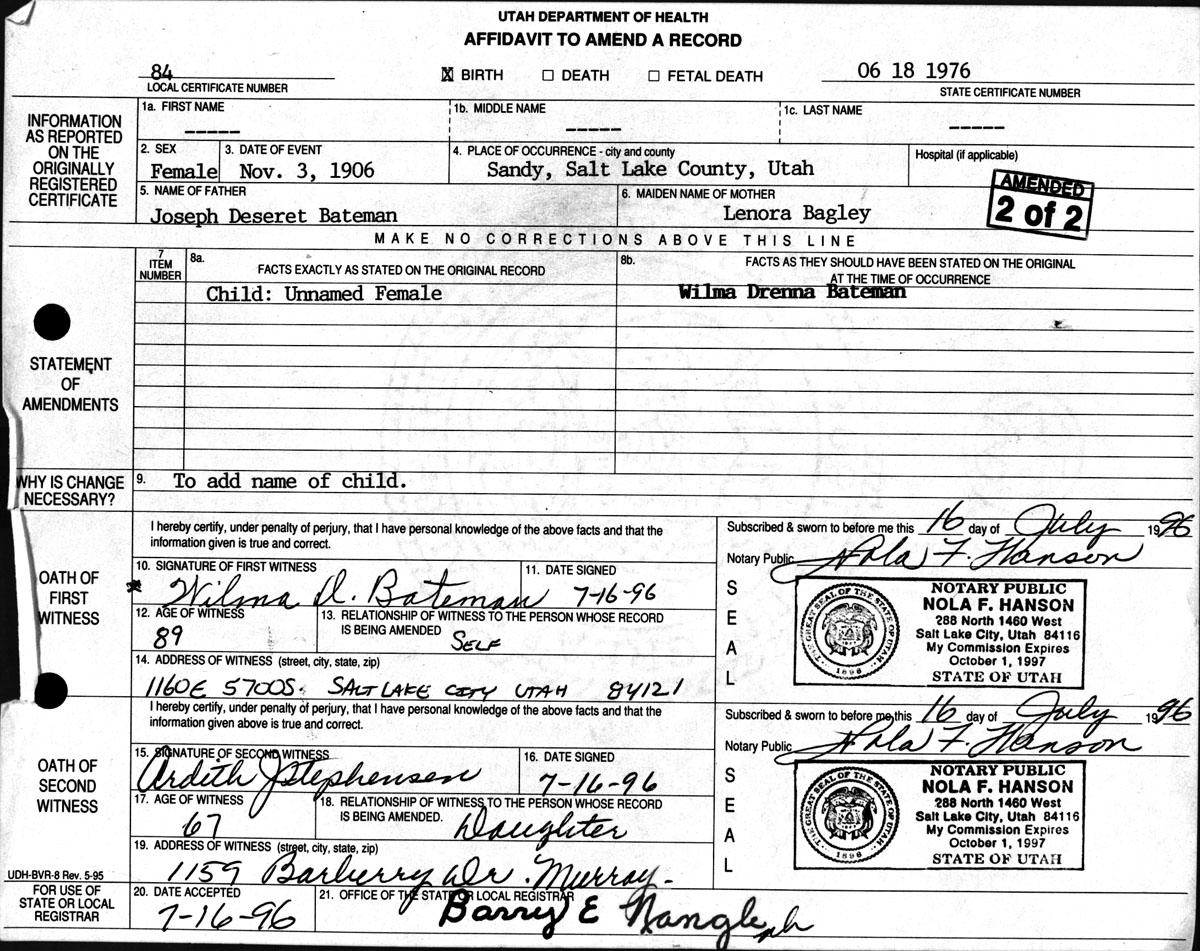 UTAH DEPARTMENT OF HEALTH
AFFIDAVIT TO AMEND A RECORD
84
LOCAL CERTIFICATE NUMBER
X BIRTH ☐ DEATH ☐ FETAL DEATH
06 18 1976
STATE CERTIFICATE NUMBER
INFORMATION AS REPORTED ON THE ORIGINALLY REGISTERED CERTIFICATE
1a. FIRST NAME
-----
1b. MIDDLE NAME
-----
1c. LAST NAME
-----
2. SEX
Female
3. DATE OF EVENT
Nov. 3, 1906
4. PLACE OF OCCURRENCE - city and county
Sandy, Salt Lake County, Utah
Hospital (if applicable)
5. NAME OF FATHER
Joseph Deseret Bateman
6. MAIDEN NAME OF MOTHER
Lenora Bagley
AMENDED
2 of 2
MAKE NO CORRECTIONS ABOVE THIS LINE
STATEMENT OF AMENDMENTS
7 ITEM NUMBER
8a.
FACTS EXACTLY AS STATED ON THE ORIGINAL RECORD
8b.
FACTS AS THEY SHOULD HAVE BEEN STATED ON THE ORIGINAL
AT THE TIME OF OCCURRENCE
Child: Unnamed Female
Wilma Drenna Bateman
WHY IS CHANGE NECESSARY?
9. To add name of child.
OATH OF FIRST WITNESS
I hereby certify, under penalty of perjury, that I have personal knowledge of the above facts and that the
information given is true and correct.
10. SIGNATURE OF FIRST WITNESS
Wilma D. Bateman
11. DATE SIGNED
7-16-96
12. AGE OF WITNESS
89
13. RELATIONSHIP OF WITNESS TO THE PERSON WHOSE RECORD
IS BEING AMENDED
SELF
14. ADDRESS OF WITNESS (street, city, state, zip)
1160 E 5700 S. SALT LAKE CITY UTAH 84121
Subscribed & sworn to before me this 16 day of July 1996
Notary Public Nola F. Hanson
SEAL
THE GREAT SEAL OF THE STATE OF UTAH
1896
NOTARY PUBLIC
NOLA F. HANSON
288 North 1460 West
Salt Lake City, Utah 84116
My Commission Expires
October 1, 1997
STATE OF UTAH
OATH OF SECOND WITNESS
I hereby certify, under penalty of perjury, that I have personal knowledge of the above facts and that the
information given above is true and correct.
15. SIGNATURE OF SECOND WITNESS
Ardith J Stephensen
16. DATE SIGNED
7-16-96
17. AGE OF WITNESS
67
18. RELATIONSHIP OF WITNESS TO THE PERSON WHOSE RECORD
IS BEING AMENDED.
Daughter
19. ADDRESS OF WITNESS (street, city, state, zip)
1159 Barberry Dr. Murray-
Subscribed & sworn to before me this 16 day of July 1996
Notary Public Nola F. Hanson
SEAL
THE GREAT SEAL OF THE STATE OF UTAH
1896
NOTARY PUBLIC
NOLA F. HANSON
288 North 1460 West
Salt Lake City, Utah 84116
My Commission Expires
October 1, 1997
STATE OF UTAH
UDH-BVR-8 Rev. 5-95
FOR USE OF STATE OR LOCAL REGISTRAR
20. DATE ACCEPTED
7-16-96
21. OFFICE OF THE STATE OR LOCAL REGISTRAR
Barry E Nangle